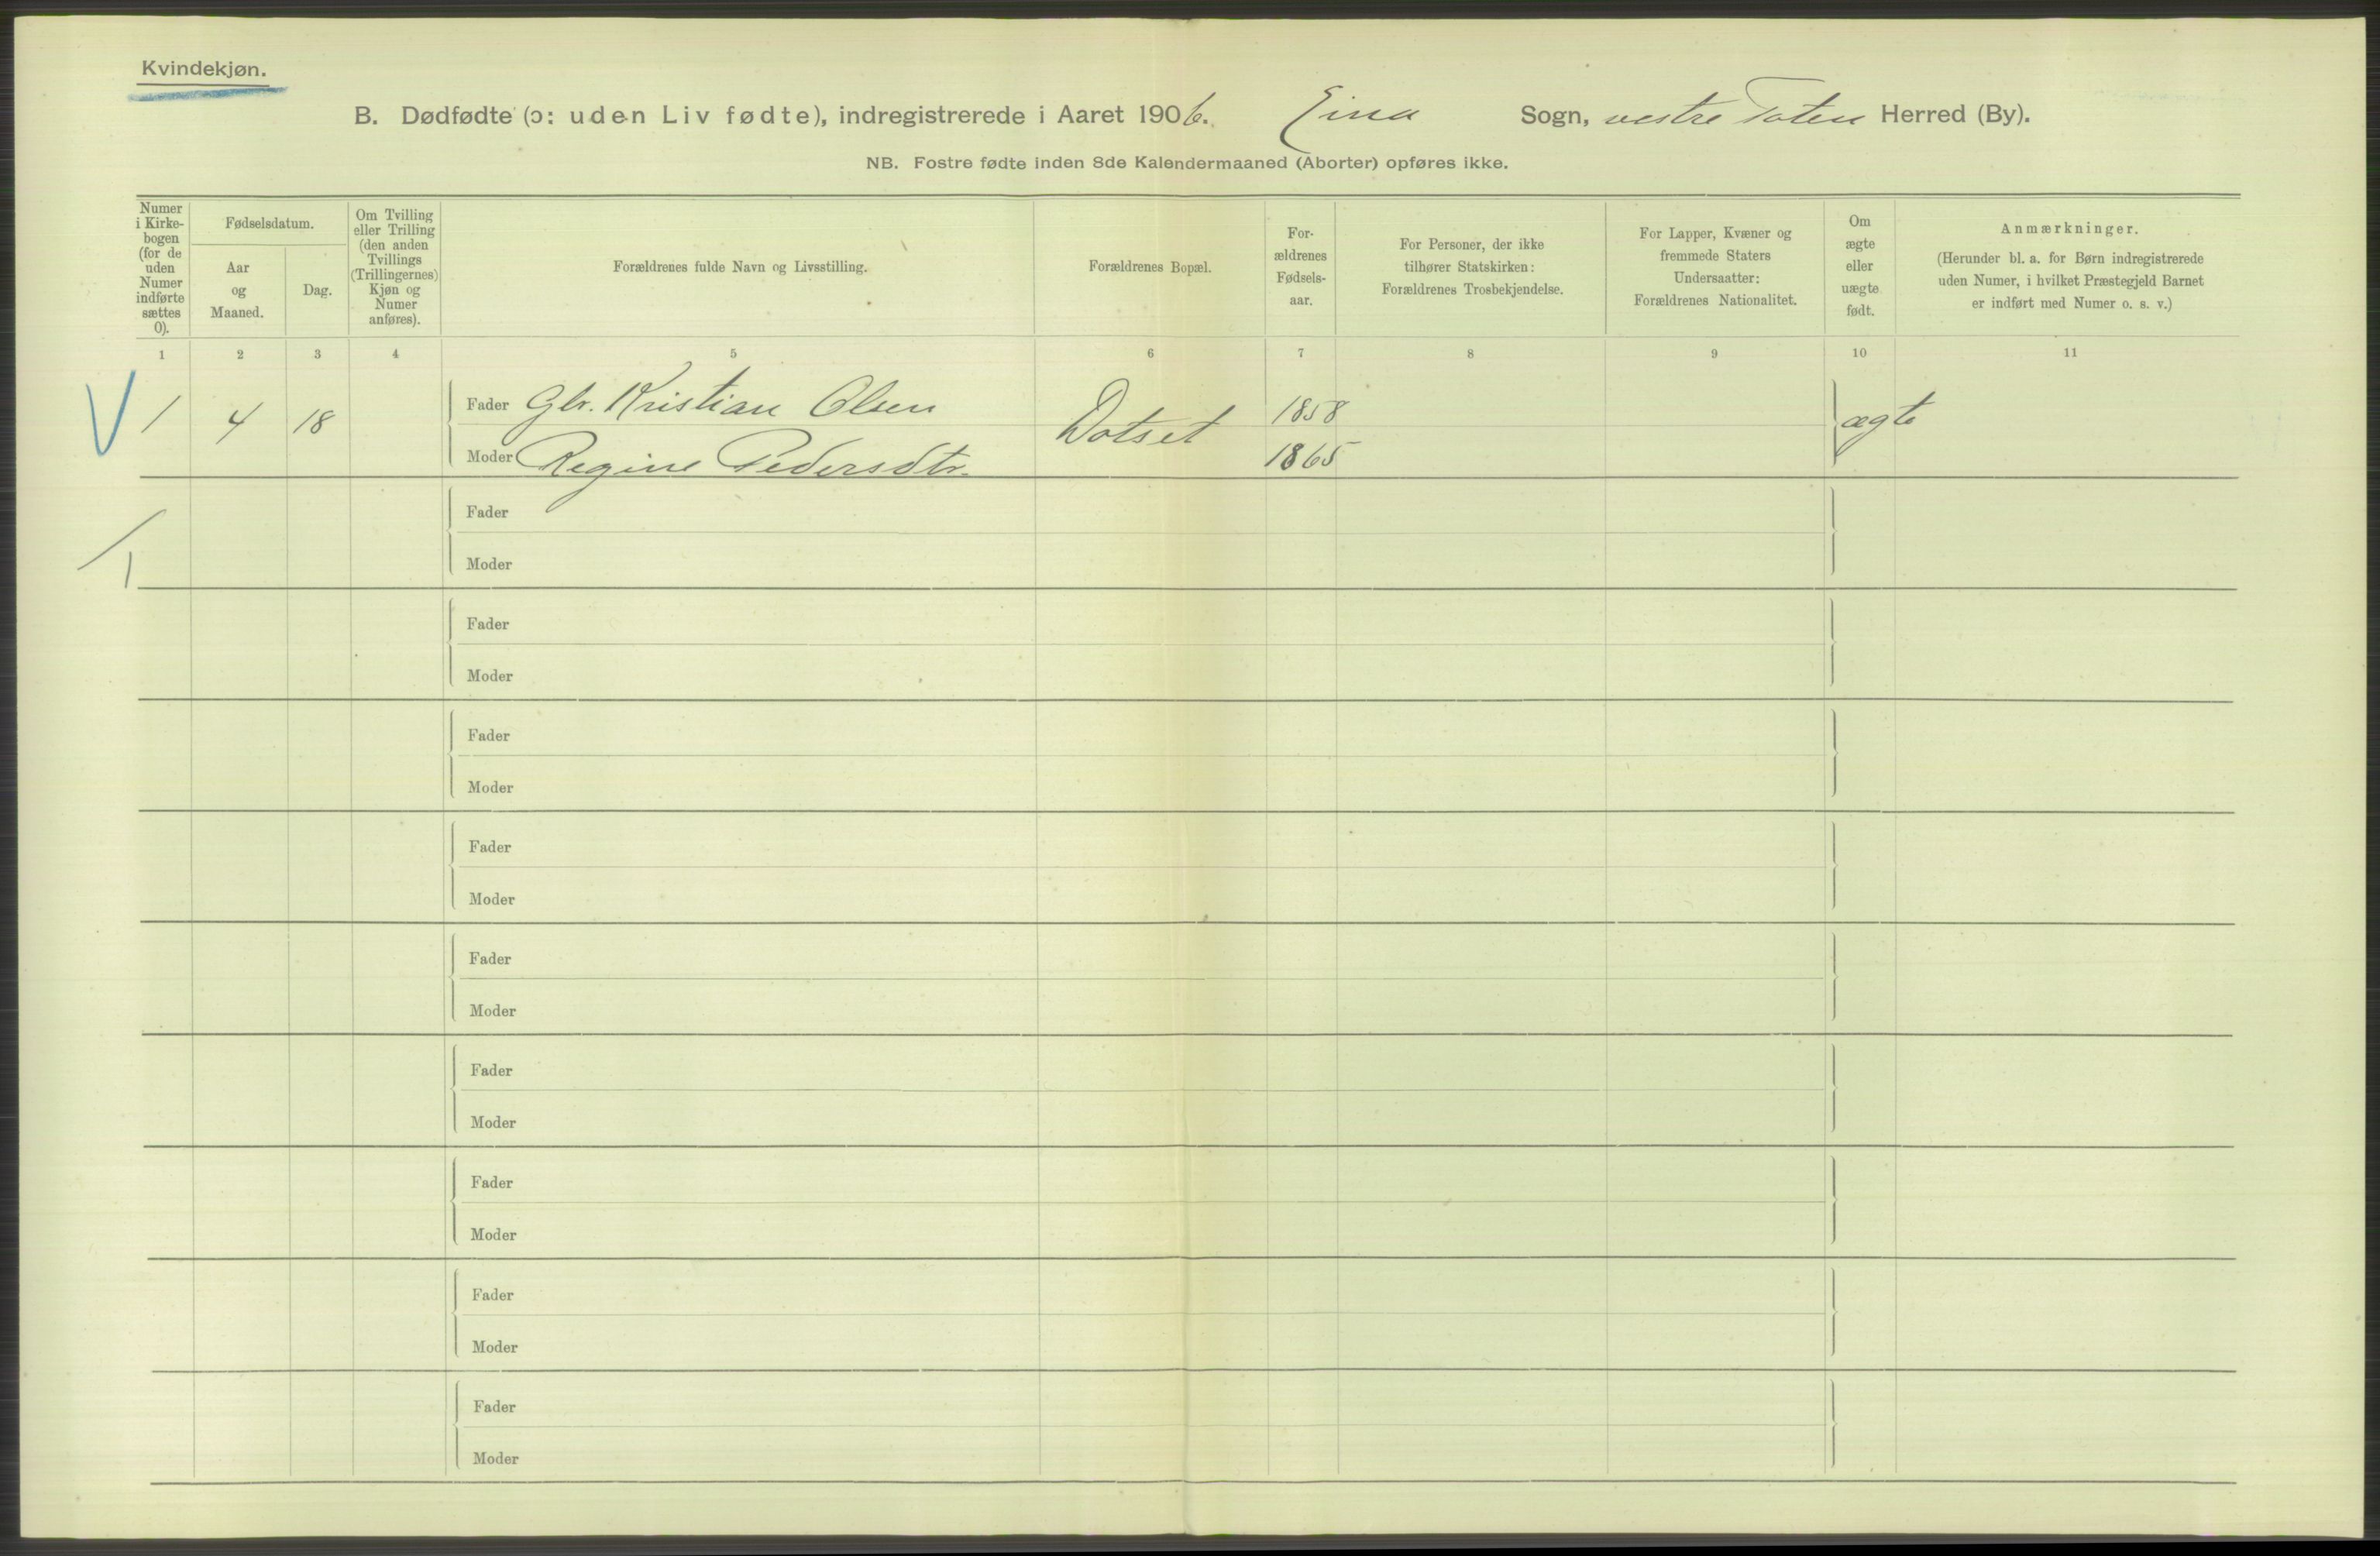 Kvindekjøn.
B. Dødfødte (ɔ: uden Liv fødte), indregistrerede i Aaret 1906. Eina Sogn, vestre Toten Herred (By).
NB. Fostre fødte inden 8de Kalendermaaned (Aborter) opføres ikke.
Numer i Kirke-bogen (for de uden Numer indførte sættes 0).
Fødselsdatum.
Aar og Maaned.
Dag.
Om Tvilling eller Trilling (den anden Tvillings (Trillingernes) Kjøn og Numer anføres).
Forældrenes fulde Navn og Livsstilling.
Forældrenes Bopæl.
For-ældrenes Fødsels-aar.
For Personer, der ikke tilhører Statskirken: Forældrenes Trosbekjendelse.
For Lapper, Kvæner og fremmede Staters Undersaatter: Forældrenes Nationalitet.
Om ægte eller uægte født.
Anmærkninger.
(Herunder bl. a. for Børn indregistrerede uden Numer, i hvilket Præstegjeld Barnet er indført med Numer o. s. v.)
1 2 3 4 5 6 7 8 9 10 11
1 4 18 Fader Gbr. Kristian Olsen Dotset 1858 ægte
Moder Regine Pedersdtr. 1865
Fader
Moder
Fader
Moder
Fader
Moder
Fader
Moder
Fader
Moder
Fader
Moder
Fader
Moder
Fader
Moder
Fader
Moder